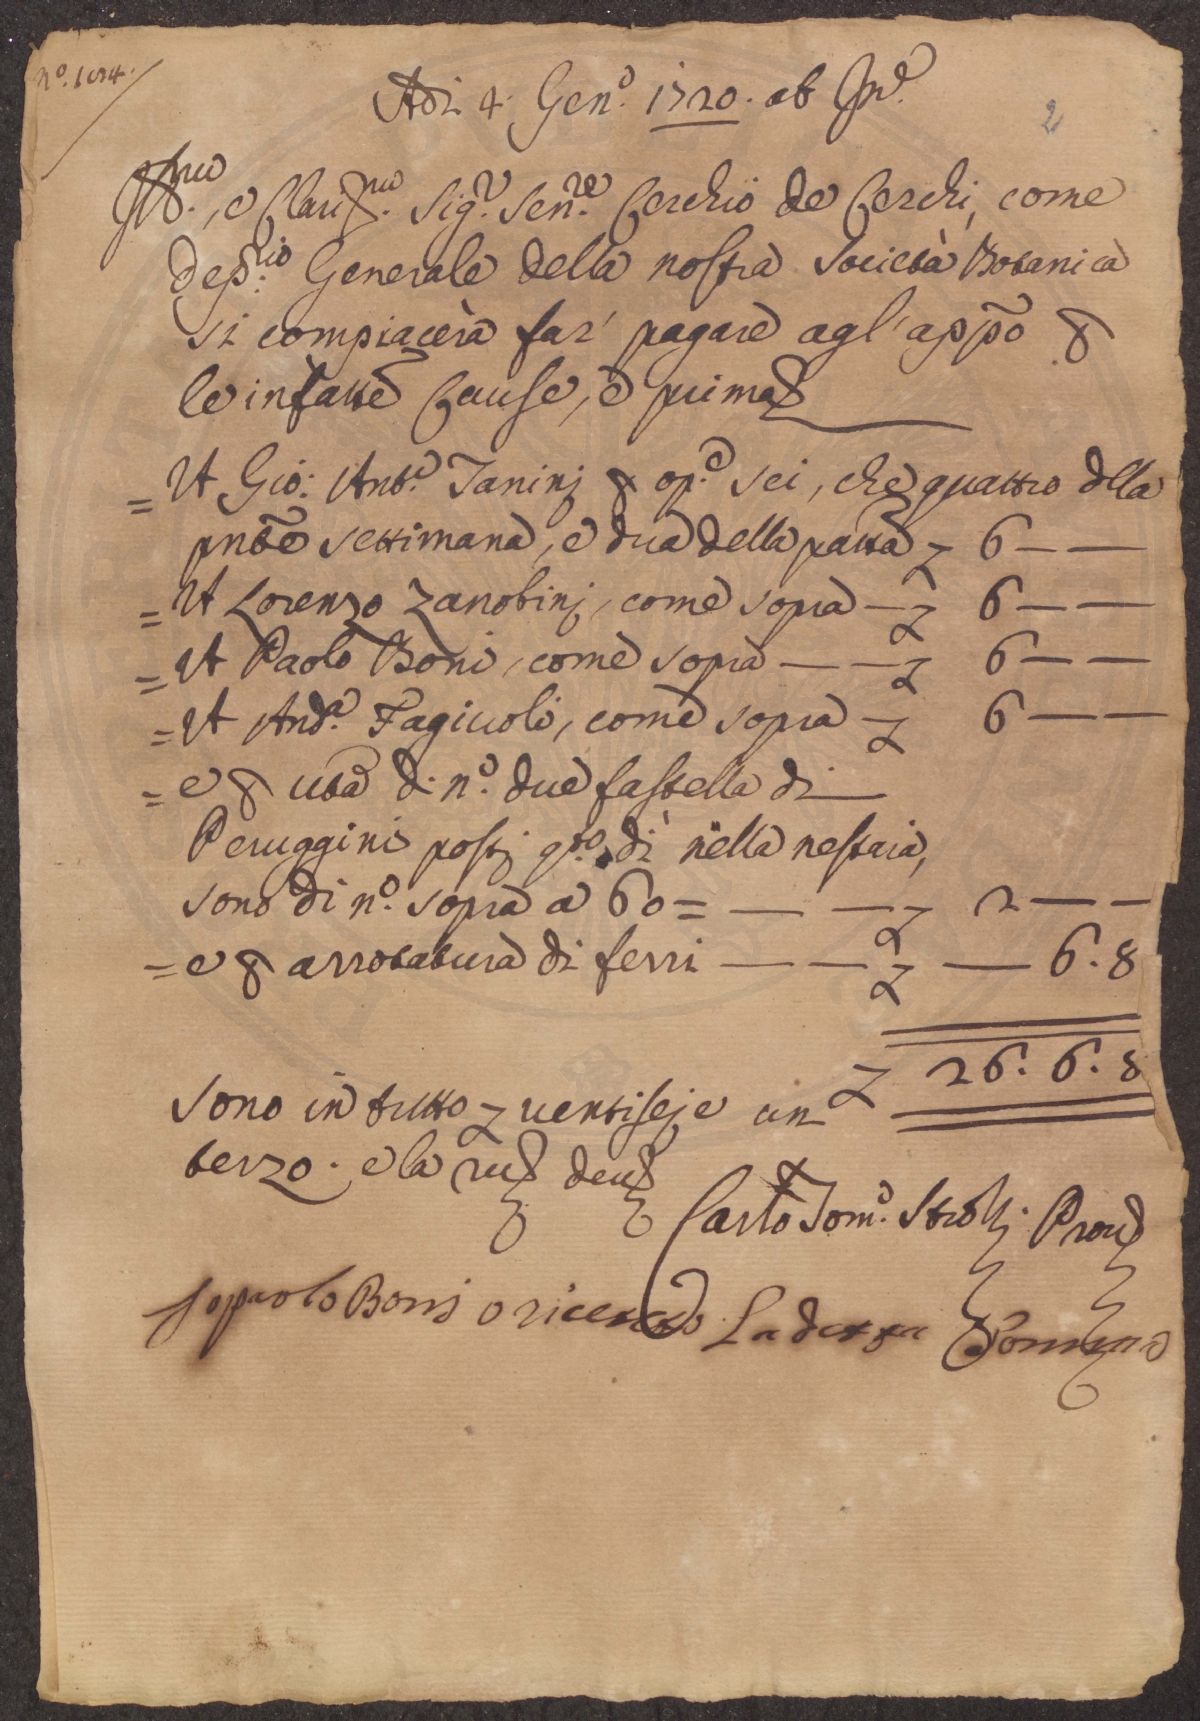 N.º 1694.
Adi 4. Gen.º 1720. ab Inc.
2
Ill.mo, e Clariss.mo Sig.r Sen.re Cerchio de Cerchi, come
Dep.rio Generale della nostra Società Botanica
si compiacerà far' pagare agl'app.o p
le infratte Cause, e prima
= A Gio: Ant.o Janinj p op.e sei, che quattro dlla
pnte settimana, e dua della passa £ 6 — —
= A Lorenzo Zanobinj, come sopra — £ 6 — —
= A Paolo Boni, come sopra — — £ 6 — —
= A And.a Fagiuoli, come sopra £ 6 — —
= e p di n.º due fastella di
Peruggini postj q.to dì nella nestaia,
sono di n.º sopra a 60 = — — £ 2 — —
= e p arrotatura di ferri — — £ — 6.8
£ 26.6.8
sono in tutto £ ventiseje un
terzo. e la
Carlo Tom.o Strozzi Prov
Io paolo Boni o riceuto La detta Somma